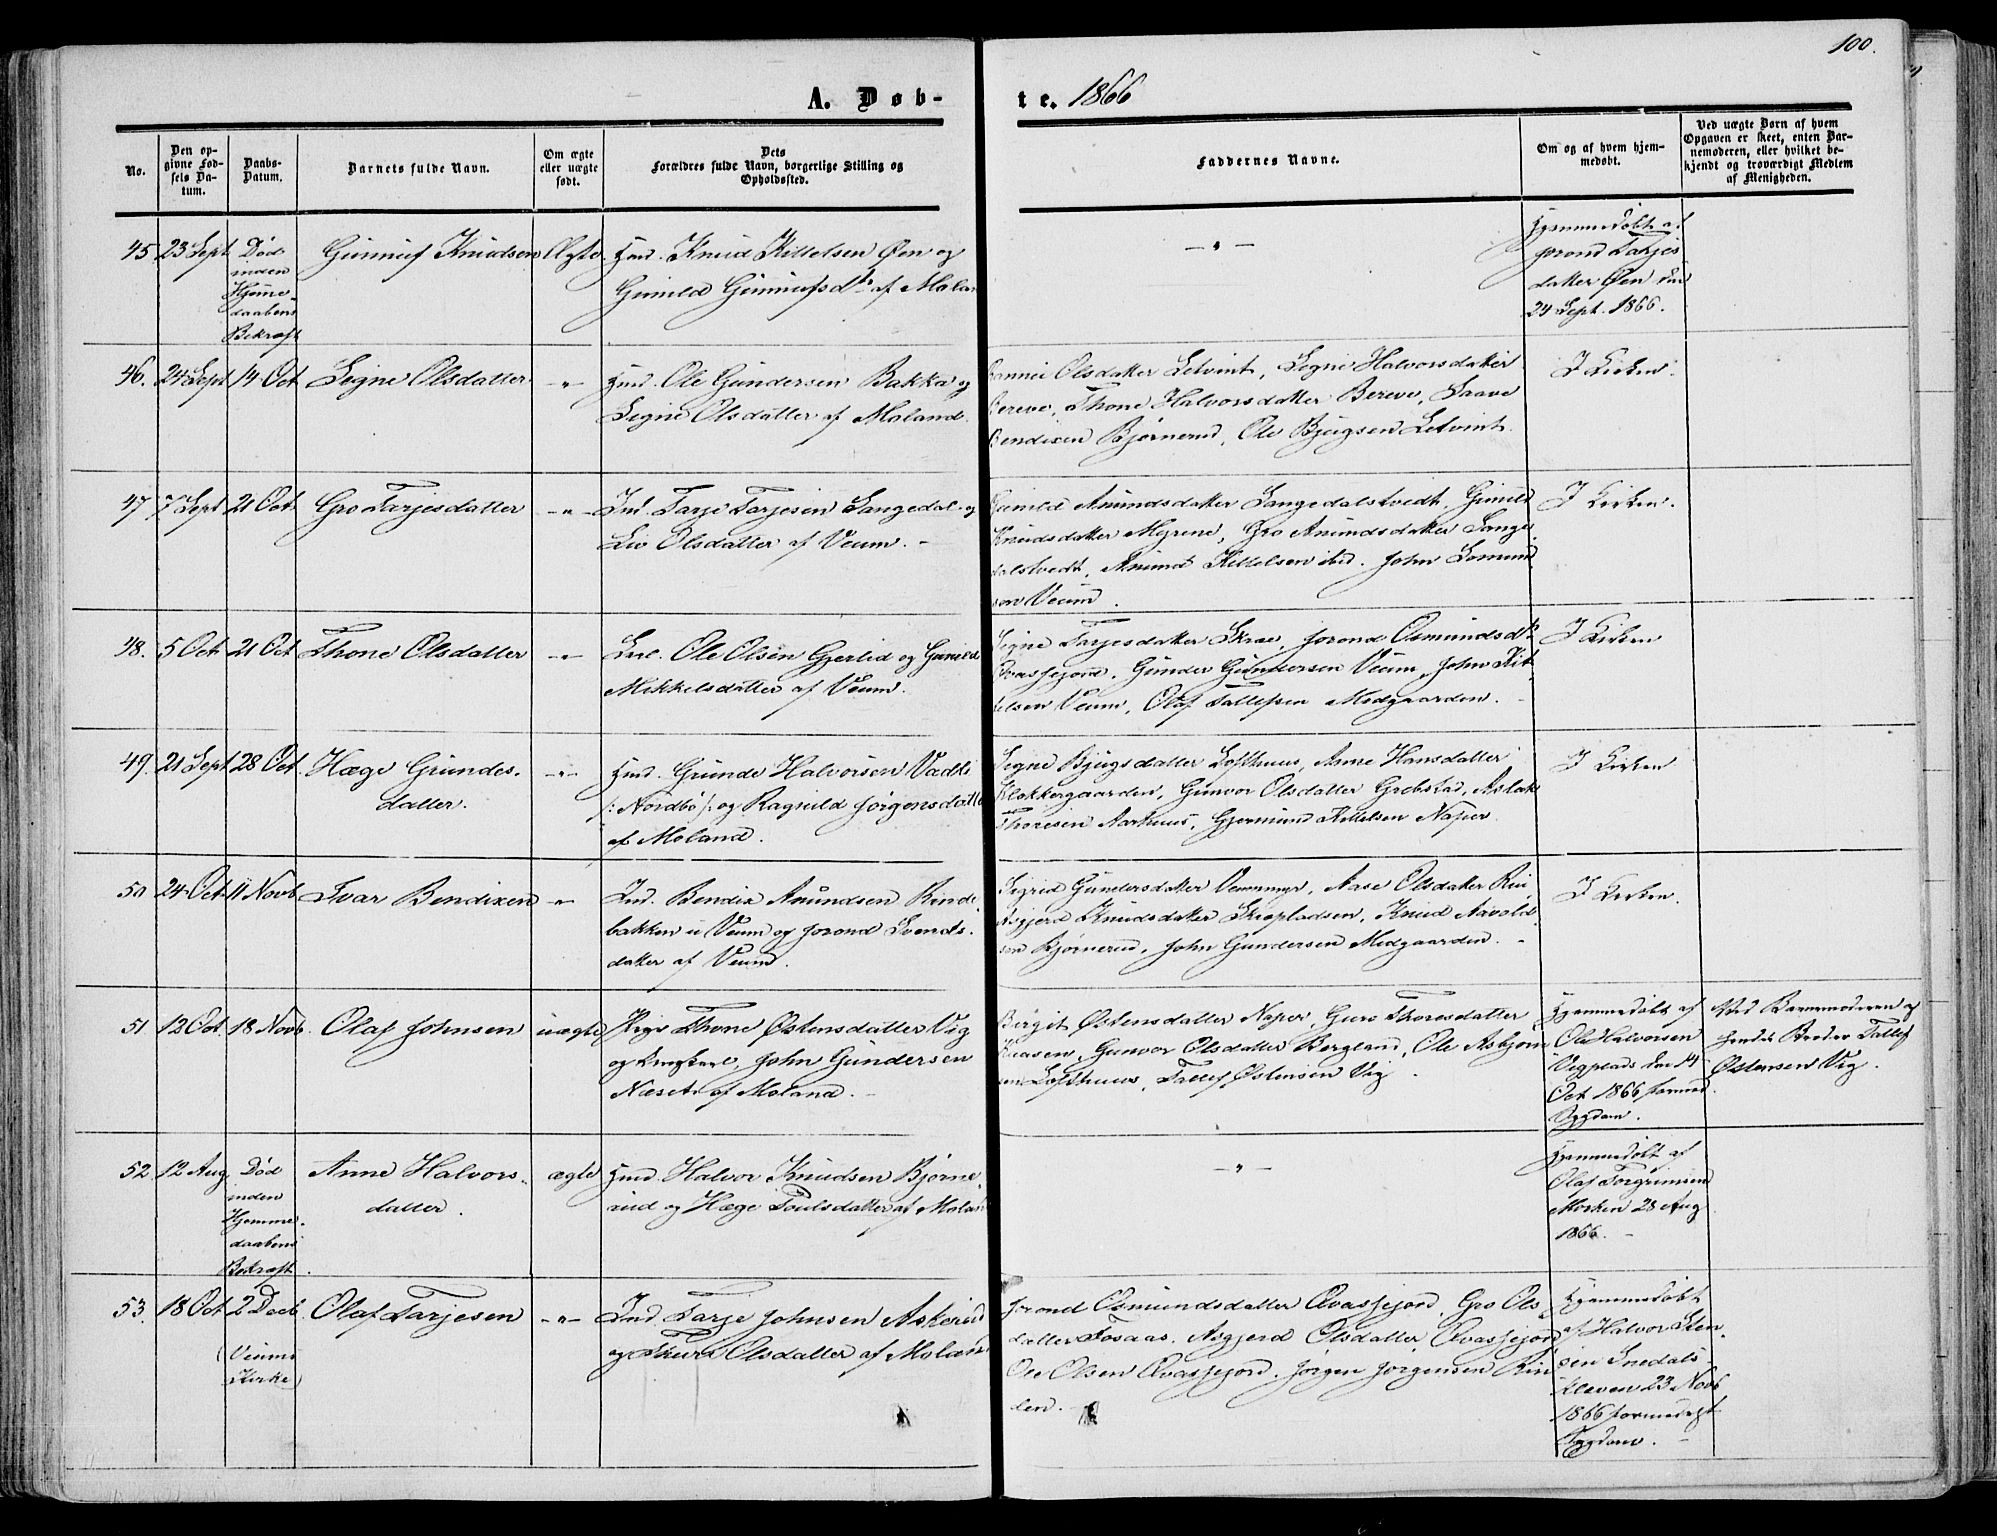 100.
A. Døb-
te. 1866
No.
Den op-
givne Fød-
sels Da-
tum.
Daabs-
Datum.
Barnets fulde Navn.
Om ægte
eller uægte
født.
Dets
Forældres fulde Navn, borgerlige Stilling og
Opholdssted.
Faddernes Navne.
Om og af hvem hjem-
medøbt.
Ved uægte Børn af hvem
Opgaven er skeet, enten Bar-
nemoderen, eller hvilket be-
kjendt og troværdigt Medlem
af Menigheden.
45 23 Sept Død
inden
Hjemme-
daabens
Bekræft
Gunnuf Knudsen
Ægte
Hmd. Knud Kittelsen Øen og
Gunild Gunnufsdtr af Moland
— " —
Hjemmedøbt af
Jorond Tarjes
datter Øen den
24 Sept. 1866.
46. 24 Sept 14 Oct Signe Olsdatter - " -
Hmd. Ole Gundersen Bakka og
Signe Olsdatter af Moland.
Olsdatter Letvint, Signe Halvorsdatter
Bereve, Thone Halvorsdatter Bereve, Saave
Bendixen Bjørnerud, Ole Bjugsen Letvint.
I Kirken.
47 7 Sept 21 Oct Gro Tarjesdatter - " -
Ind. Tarje Tarjesen Langedal og
Liv Olsdatter af Veum. -
Gunild Anundsdatter Langedalstvedt, Gunild
Knudsdatter Myrene, Gro Anundsdatter Lange
dalstvedt, Anund Kittelsen ibd. John
sen Veum.
I Kirken.
48. 5 Oct 21 Oct Thone Olsdatter - " -
Ole Olsen Gjerlid og Gunild
Mikkelsdatter af Veum.
Signe Tarjesdatter Skree, Jorond Osmundsdtr
Qvasfjord, Gunder Gundersen Veum, John Kit
telsen Veum, Olaf Tallefsen Midgaarden. -
I Kirken
49. 21 Sept 28 Oct Hæge Grundes-
datter.
- " -
Hmd. Grunde Halvorsen
/: Nordbø :/ og Ragnild Jørgensdatter
af Moland.
Signe Bjugsdatter Lofthuus, Anne Hansdatter
Klokkergaarden, Gunvor Olsdatter Grebstad, Aslak
Thoresen Aarhuus, Gjermund Kittelsen Naper.
I Kirken
50 24 Oct 11 Novb Ivar Bendixen - " -
Ind. Bendix Anundsen Rinde-
bakken i Veum og Jorond Svends-
datter af Veum.
Sigrid Gundersdatter Veummyr, Aase Olsdatter
Asgjerd Knudsdatter Skrepladsen, Knud Aavold
sen Bjørnerud, John Gundersen Midgaarden. -
I Kirken.
51 12 Oct. 18 Novb. Olaf Johnsen uægte
Pige Thone Østensdatter Vig
og Ungkarl, John Gundersen
Næset af Moland. -
Birgit Østensdatter Naper, Guro Thoresdatter
Gunvor Olsdatter Bergland, Ole Asbjørn
sen Lofthuus, Tallef Østensen Vig.
Hjemmedøbt af
Ole Halvorsen
Vigplads den 14
Oct 1866 formed.
Sygdom.
Ved Barnemoderen og
hendes Broder Tallef
Østensen Vig.
52 12 Aug Død
inden
Hjemme-
daabens
Bekræft.
Anne Halvors-
datter.
ægte
Hmd. Halvor Knudsen Bjørne-
rud og Hæge Poulsdatter af Moland
— " —
Hjemmedøbt af
Olaf Torgrimsen
Moskin 28 Aug
1866. -
53. 18 Oct 2 Decb.
(Veums
Kirke)
Olaf Tarjesen - " -
Ind. Tarje Johnsen Askerud
og Olsdatter af Moland
Jorond Osmundsdatter Qvasfjord, Gro Ols
datter Fosaas, Asgjerd Olsdatter Qvasfjord
Ole Olsen Qvasfjord, Jørgen Jørgensen Rin
len. -
Hjemmedøbt
af Halvor Sten-
sen Snedals
kleven 23 Novb
1866 formedelst
Sygdom. -